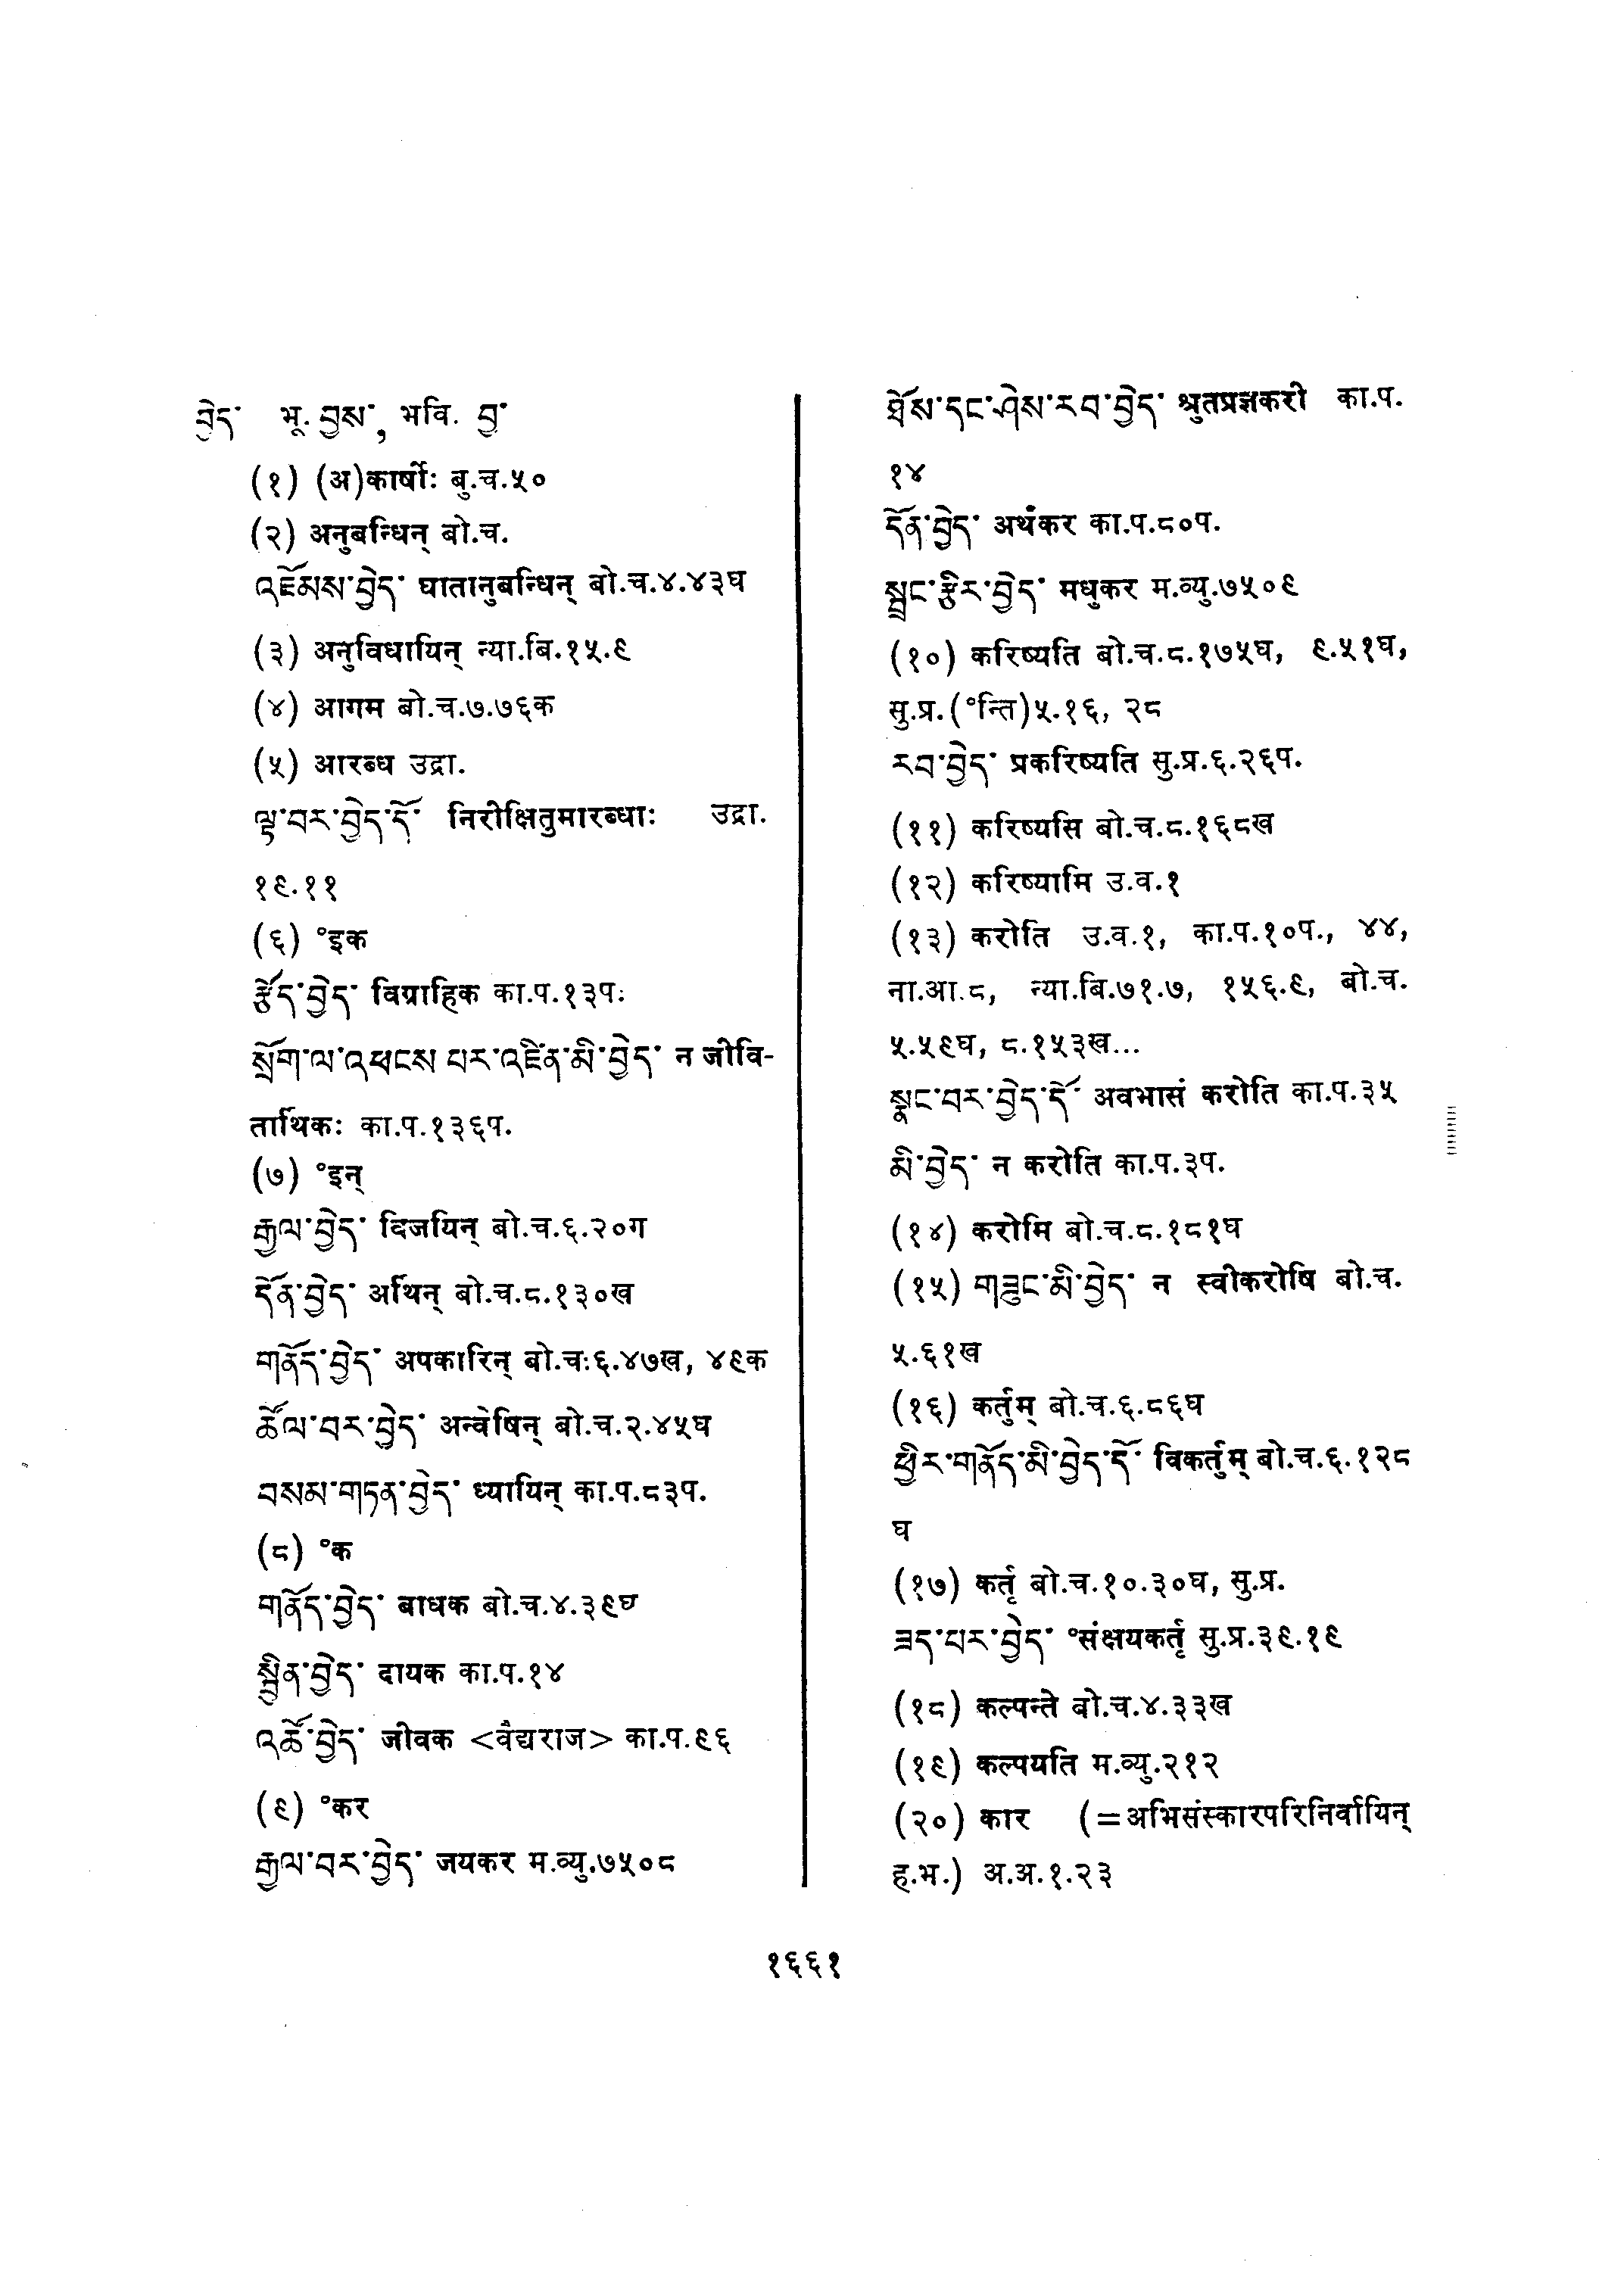 བྱེད་ भू. བྱས་, भवि. བྱ་
(१) (अ)कार्षीः बु.च.५०
(२) अनुबन्धिन् बो.च.
འཇོམས་བྱེད་ घातानुबन्धिन् बो.च.४.४३घ
(३) अनुविधायिन् न्या.बि.१५.९
(४) आगम बो.च.७.७६क
(५) आरब्ध उद्रा.
ལྟ་བར་བྱེད་དོ་ निरीक्षितुमारब्धाः उद्रा.
१९.११
(६) °इक
རྩོད་བྱེད་ विग्राहिक का.प.१३प.
སྲོག་ལ་འཕངས པར་འཛིན་མི་བྱེད་ न जीवि-
तार्थिकः का.प.१३६प.
(७) °इन्
རྒྱལ་བྱེད་ विजयिन् बो.च.६.२०ग
དོན་བྱེད་ अर्थिन् बो.च.८.१३०ख
གནོད་བྱེད་ अपकारिन् बो.च.६.४७ख, ४९क
ཚོལ་བར་བྱེད་ अन्वेषिन् बो.च.२.४५घ
བསམ་གཏན་བྱེད་ ध्यायिन् का.प.८३प.
(८) °क
གནོད་བྱེད་ बाधक बो.च.४.३९घ
སྦྱིན་བྱེད་ दायक का.प.१४
འཚོ་བྱེད་ जीवक <वैद्यराज> का.प.९६
(९) °कर
རྒྱལ་བར་བྱེད་ जयकर म.व्यु.७५०८
ཐོས་དང་ཤེས་རབ་བྱེད་ श्रुतप्रज्ञकरी का.प.
१४
དོན་བྱེད་ अर्थकर का.प.८०प.
སྦྲང་རྩིར་བྱེད་ मधुकर म.व्यु.७५०९
(१०) करिष्यति बो.च.८.१७५घ, ९.५१घ,
सु.प्र.(°न्ति)५.१६, २८
རབ་བྱེད་ प्रकरिष्यति सु.प्र.६.२६प.
(११) करिष्यसि बो.च.८.१६८ख
(१२) करिष्यामि उ.व.१
(१३) करोति उ.व.१, का.प.१०प., ४४,
ना.आ.८, न्या.बि.७१.७, १५६.९, बो.च.
५.५९घ, ८.१५३ख...
སྣང་བར་བྱེད་དོ་ अवभासं करोति का.प.३५
མི་བྱེད་ न करोति का.प.३प.
(१४) करोमि बो.च.८.१८१घ
(१५) གཟུང་མི་བྱེད་ न स्वीकरोषि बो.च.
५.६१ख
(१६) कर्तुम् बो.च.६.८६घ
ཕྱིར་གནོད་མི་བྱེད་དོ་ विकर्तुम् बो.च.६.१२८
घ
(१७) कर्तृ बो.च.१०.३०घ, सु.प्र.
ཟད་པར་བྱེད་ °संक्षयकर्तृ सु.प्र.३९.१९
(१८) कल्पन्ते बो.च.४.३३ख
(१९) कल्पयति म.व्यु.२१२
(२०) कार (=अभिसंस्कारपरिनिर्वायिन्
ह.भ.) अ.अ.१.२३
१६६१